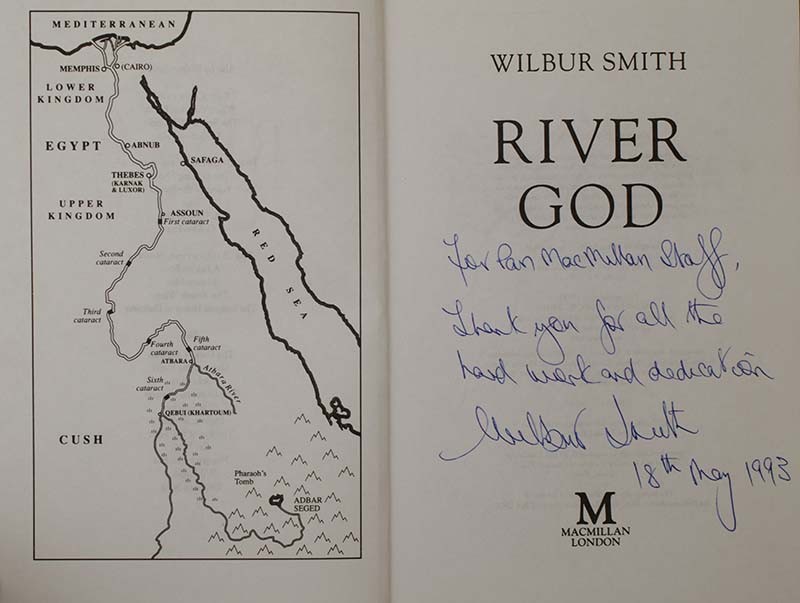 MEDITERRANEAN
MEMPHIS
(CAIRO)
LOWER
KINGDOM
EGYPT
ABNUB
SAFAGA
THEBES
(KARNAK
& LUXOR)
UPPER
KINGDOM
ASSOUN
First cataract
RED SEA
Second
cataract
Third
cataract
Fourth
cataract
Fifth
cataract
ATBARA
Atbara River
Sixth
cataract
QEBUI (KHARTOUM)
CUSH
Pharaoh's
Tomb
ADBAR
SEGED
WILBUR SMITH
RIVER
GOD
For Pan MacMillan Staff,
Thank you for all the
hard work and dedication
Wilbur Smith
18th May 1993
M
MACMILLAN
LONDON